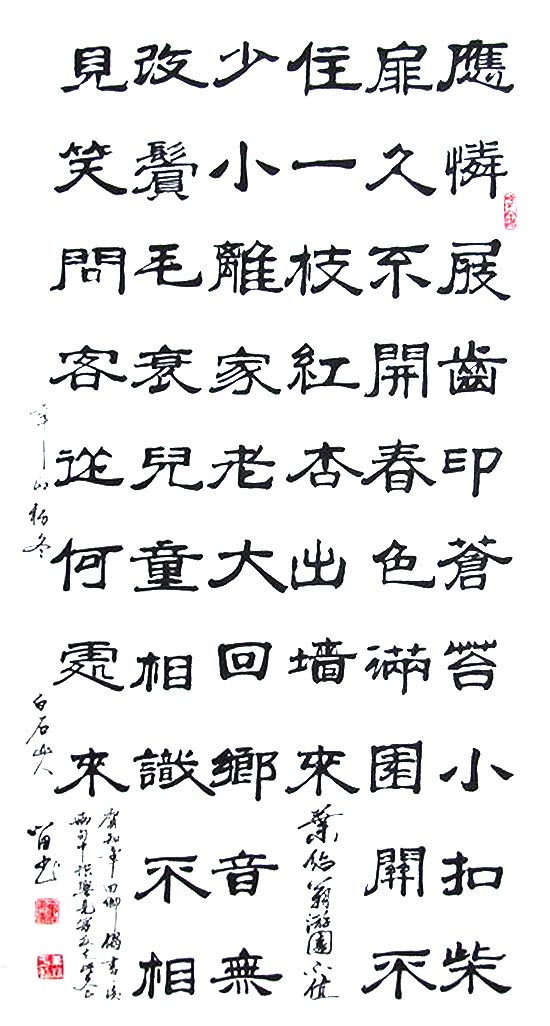 應憐屐齒印蒼苔小扣柴
扉久不開春色滿園關不
住一枝紅杏出墙來
葉紹翁游園不值
少小離家老大回鄉音無
改鬢毛衰兒童相識不相
見笑問客從何處來
賀知章回鄉偶書
初冬
白石山人